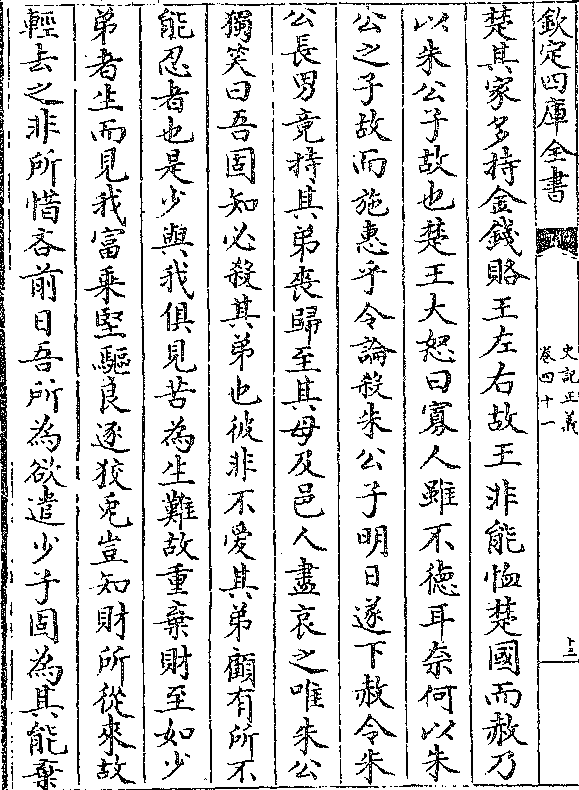 欽定四庫全書
史記正義
卷四十一
楚其家多持金錢賂王左右故王非能恤楚國而赦乃
以朱公子故也楚王大怒曰寡人雖不徳耳奈何以朱
公之子故而施惠乎令論殺朱公子明日遂下赦令朱
公長男竟持其弟喪歸至其母及邑人盡哀之唯朱公
獨笑曰吾固知必殺其弟也彼非不愛其弟顧有所不
能忍者也是少與我俱見苦為生難故重棄財至如少
弟者生而見我富乗堅驅良逐狡兎豈知財所從來故
輕去之非所惜吝前日吾所為欲遣少子固為其能棄